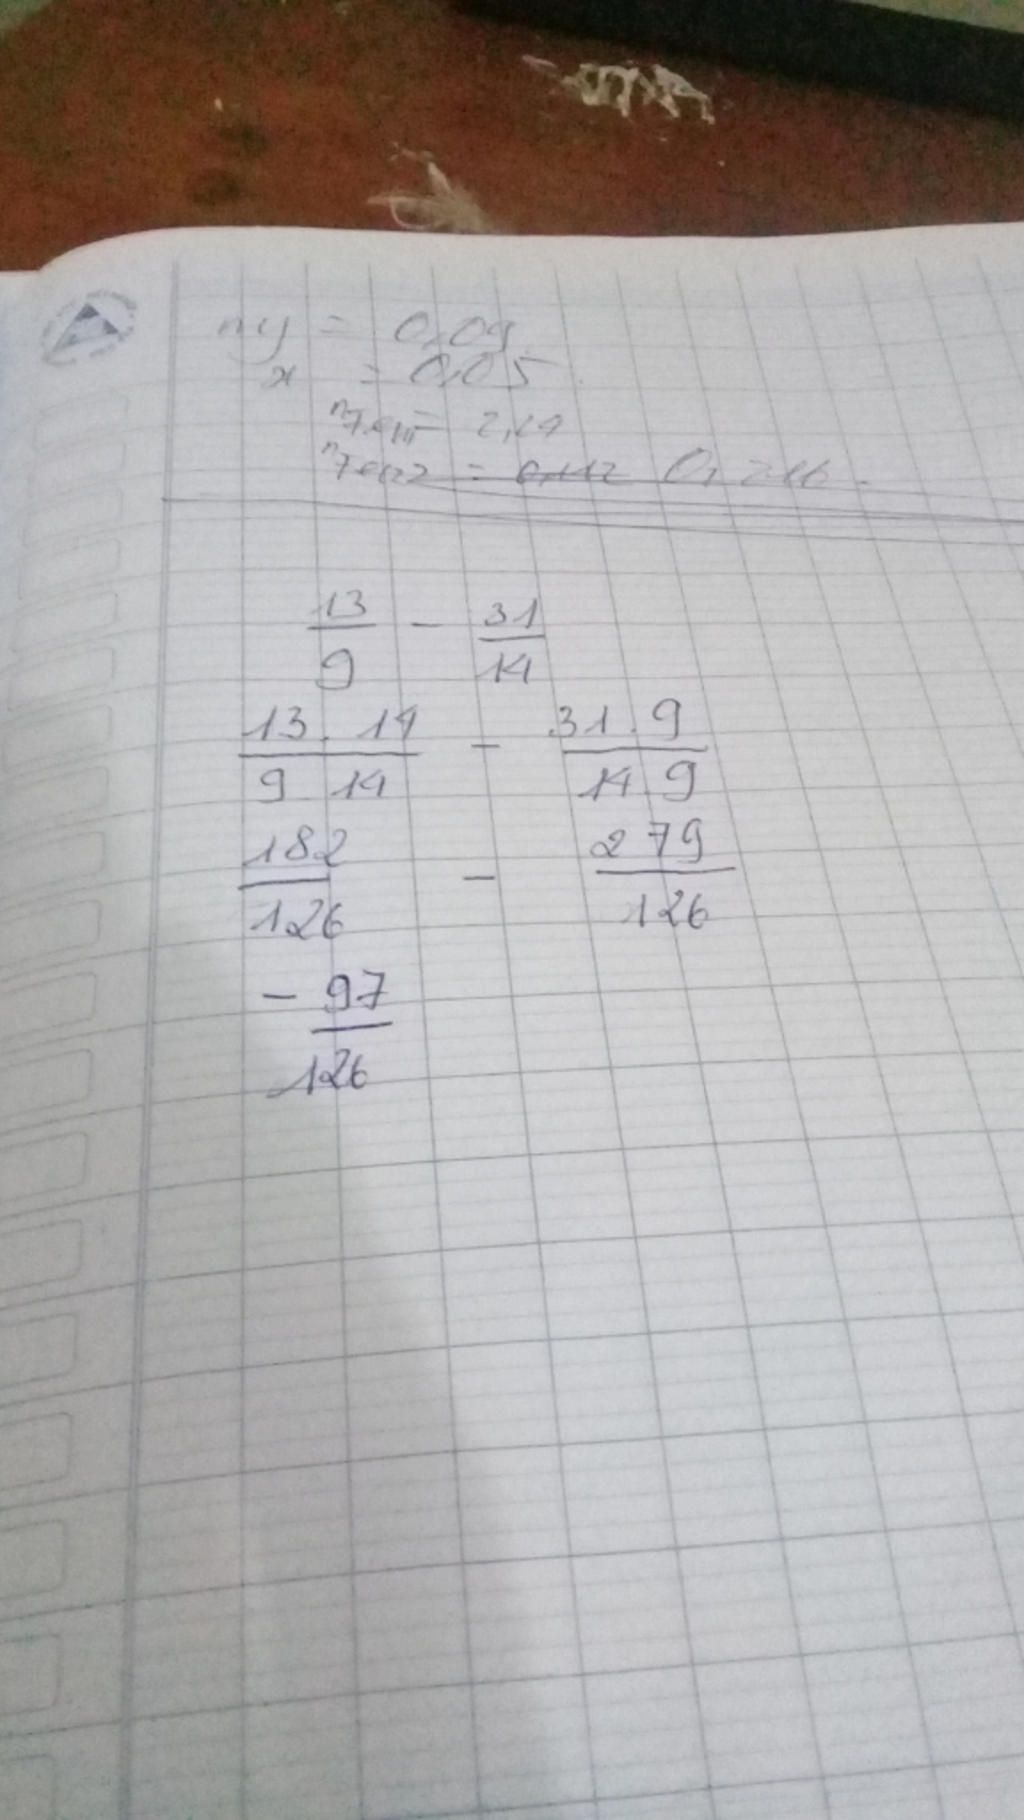 ny = 0,09
x = 0,05
= 2,19
= 0,112 0,216.
13/9 - 31/14
13 . 14/9 14 - 31 . 9/14 . 9
182/126 - 279/126
- 97/126